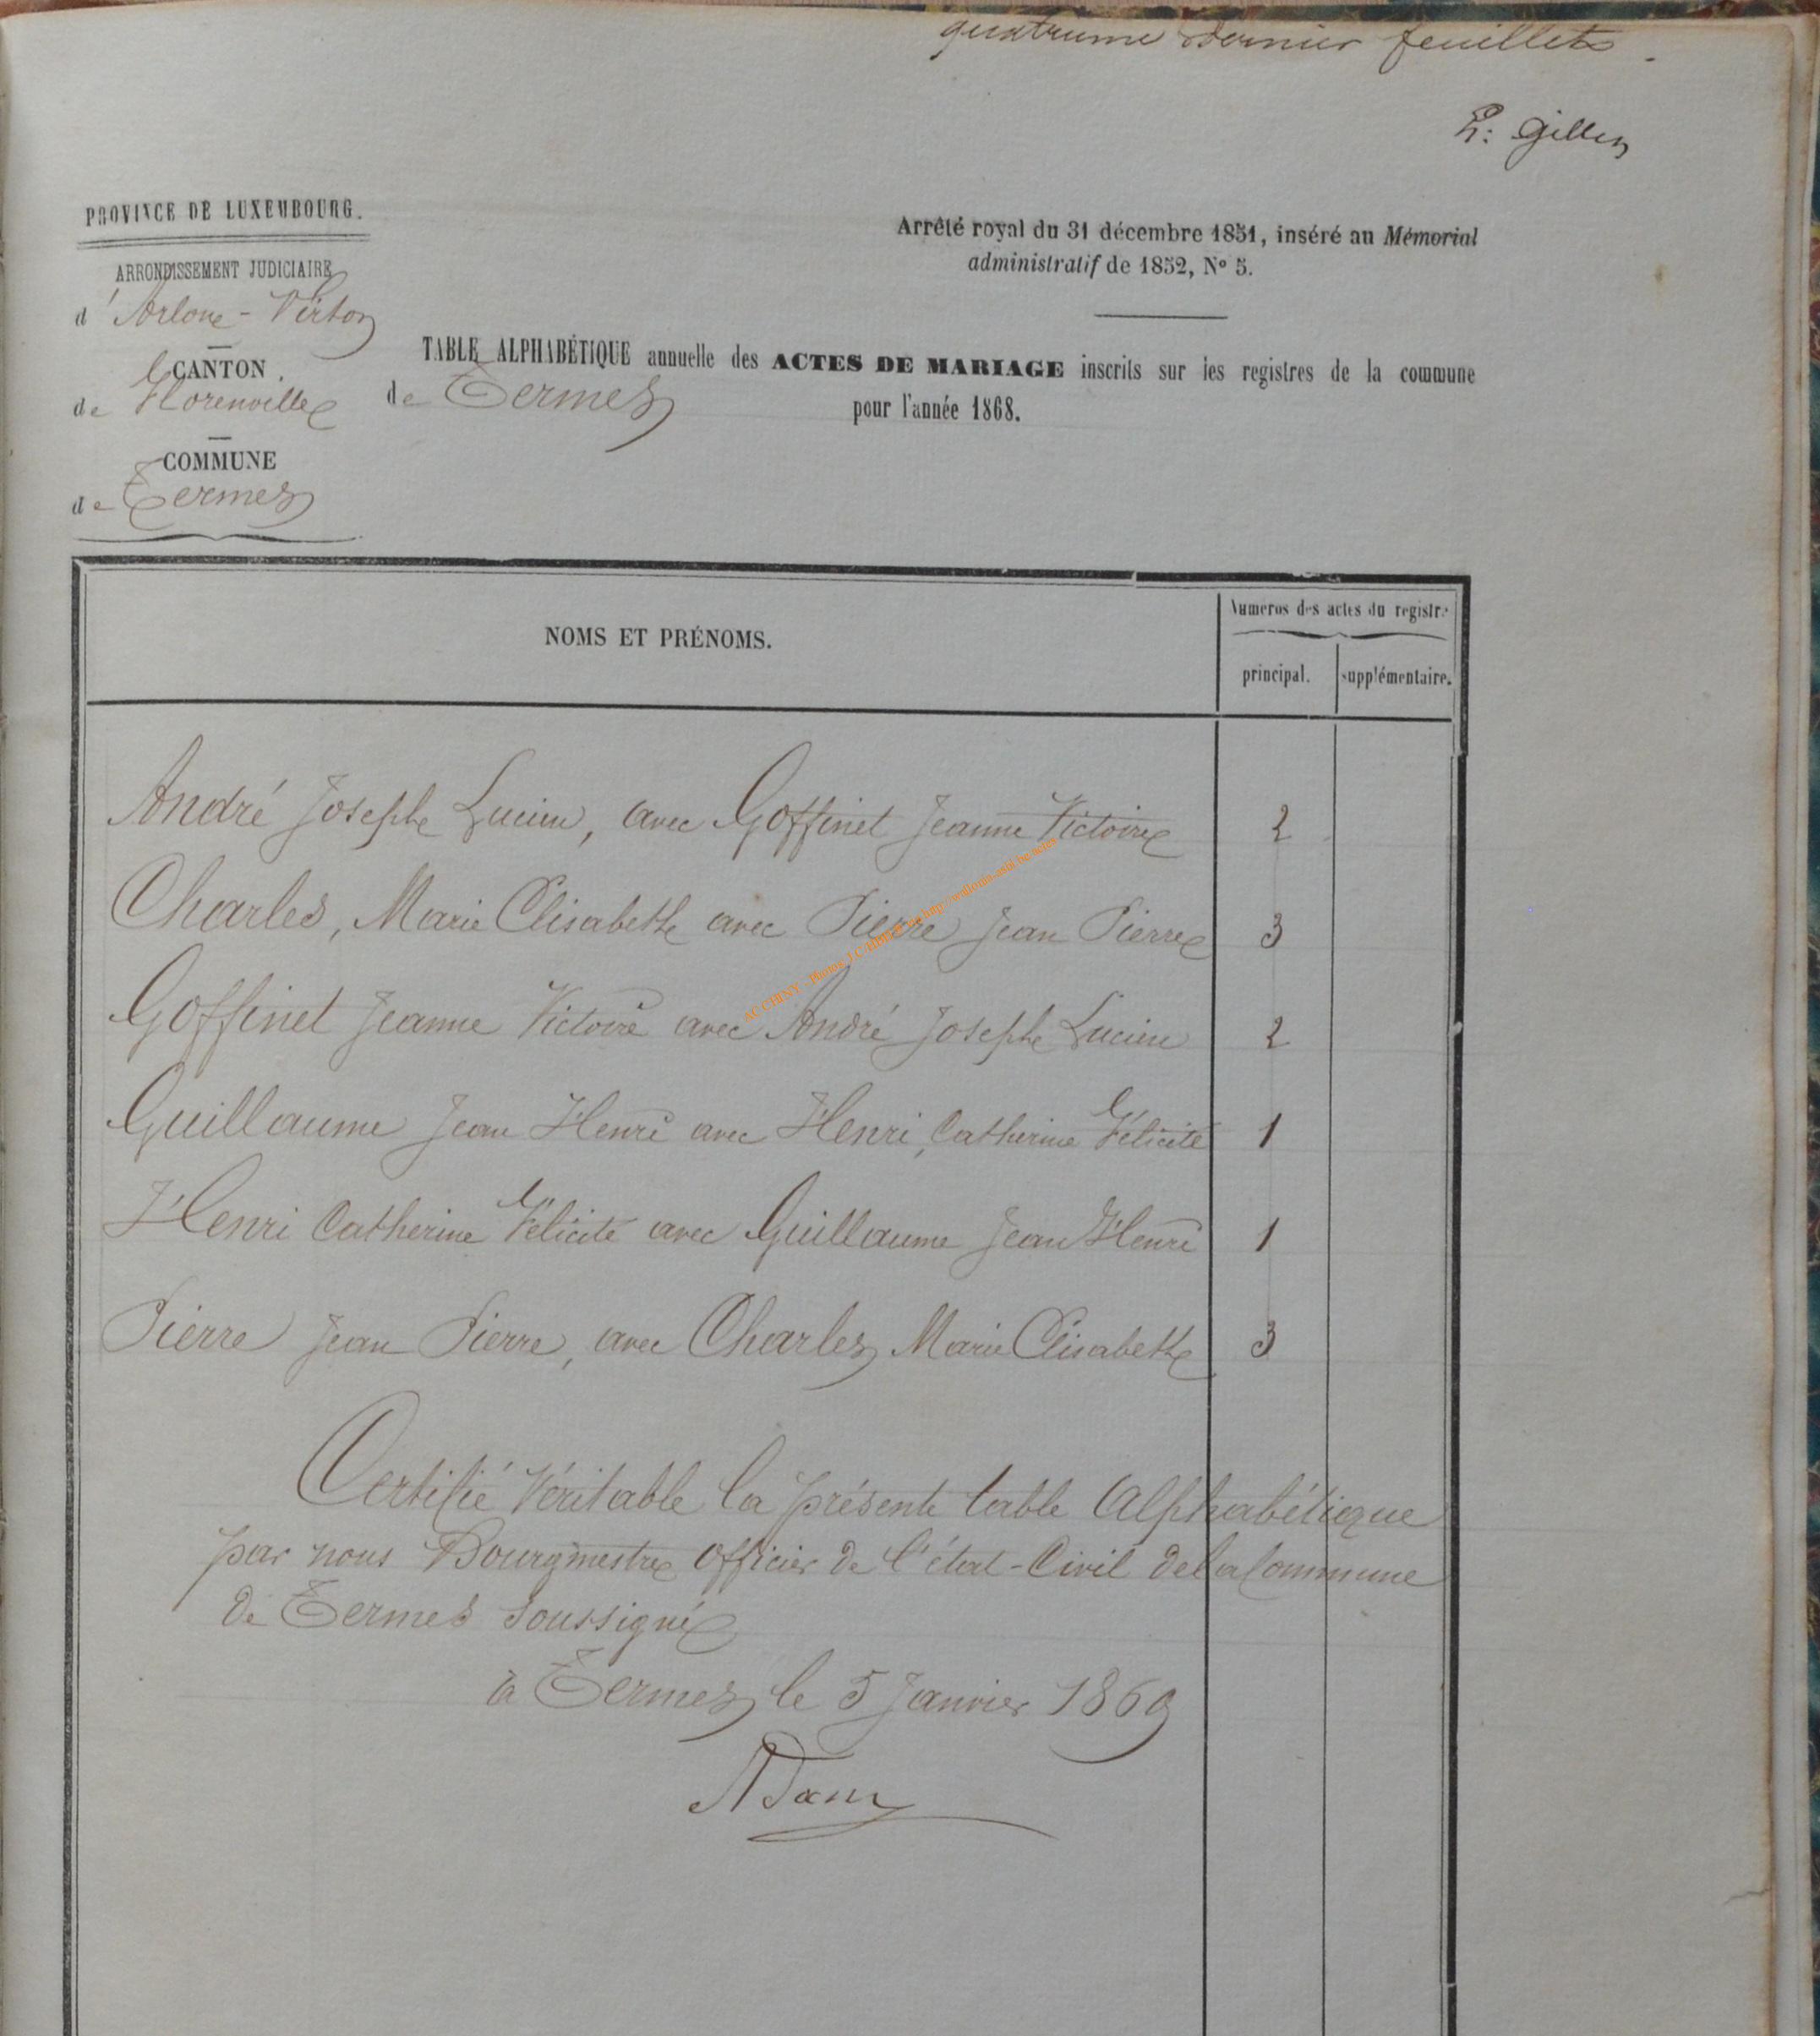 quatrième dernier feuillet
gillen
PROVINCE DE LUXEMBOURG.
ARRONDISSEMENT JUDICIAIRE
d'Arlon - Virton
CANTON
de Florenville
COMMUNE
de Termes
Arrêté royal du 31 décembre 1851, inséré au Mémorial
administratif de 1852, N° 5.
TABLE ALPHABÉTIQUE annuelle des ACTES DE MARIAGE inscrits sur les registres de la commune
de Termes pour l'année 1868.
NOMS ET PRÉNOMS.
Numeros des actes du registre
principal. supplémentaire.
André Joseph Lucien, avec Goffinet Jeanne Victoire 2
Charles, Marie Elisabeth avec Pierre Jean Pierre 3
Goffinet Jeanne Victoire avec André Joseph Lucien 2
Guillaume Jean Henri avec Henri, Catherine Félicité 1
Henri Catherine Félicité avec Guillaume Jean Henri 1
Pierre Jean Pierre, avec Charles Marie Elisabeth 3
Certifié Véritable la présente table Alphabétique
par nous Bourgmestre officier de l'état-Civil de la Commune
de Termes soussigné
à Termes le 5 Janvier 1869
Adam
AC CHINY - Photos